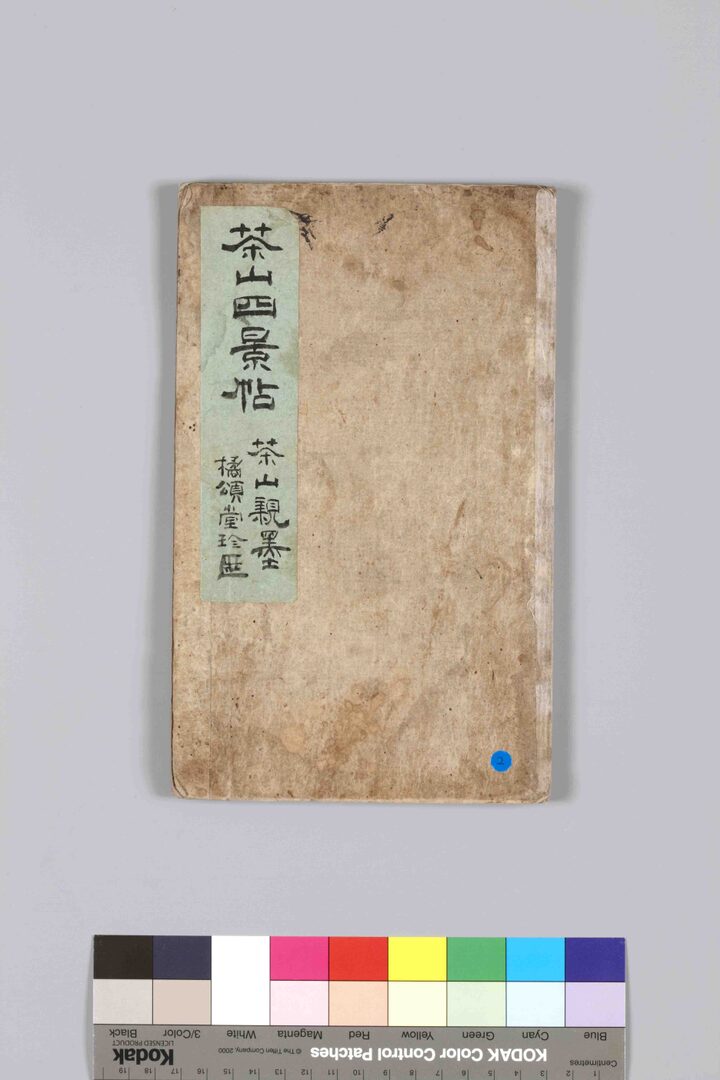 茶山四景帖
茶山親墨
橘頌堂珍
2
1 2 3 4 5 6 7 8 9 10 11 12 13 14 15 16 17 18 19
Centimetres
KODAK Color Control Patches © The Tiffen Company, 2000 Kodak
LICENSED PRODUCT
Blue Cyan Green Yellow Red Magenta White 3/Color Black